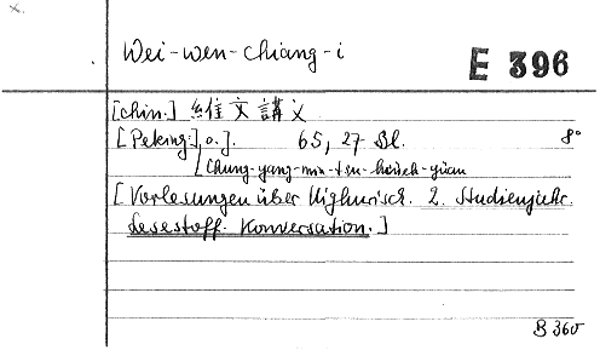 x.
Wei-wen-chiang-i
E 396
[chin.] 維文講义
[Peking:], o.J. 65, 27 Bl. 8°
[Chung-yang-min-tsu-hsüeh-yüan
[Vorlesungen über Uighurisch. 2. Studienjahr.
Lesestoff. Konversation.]
B 360